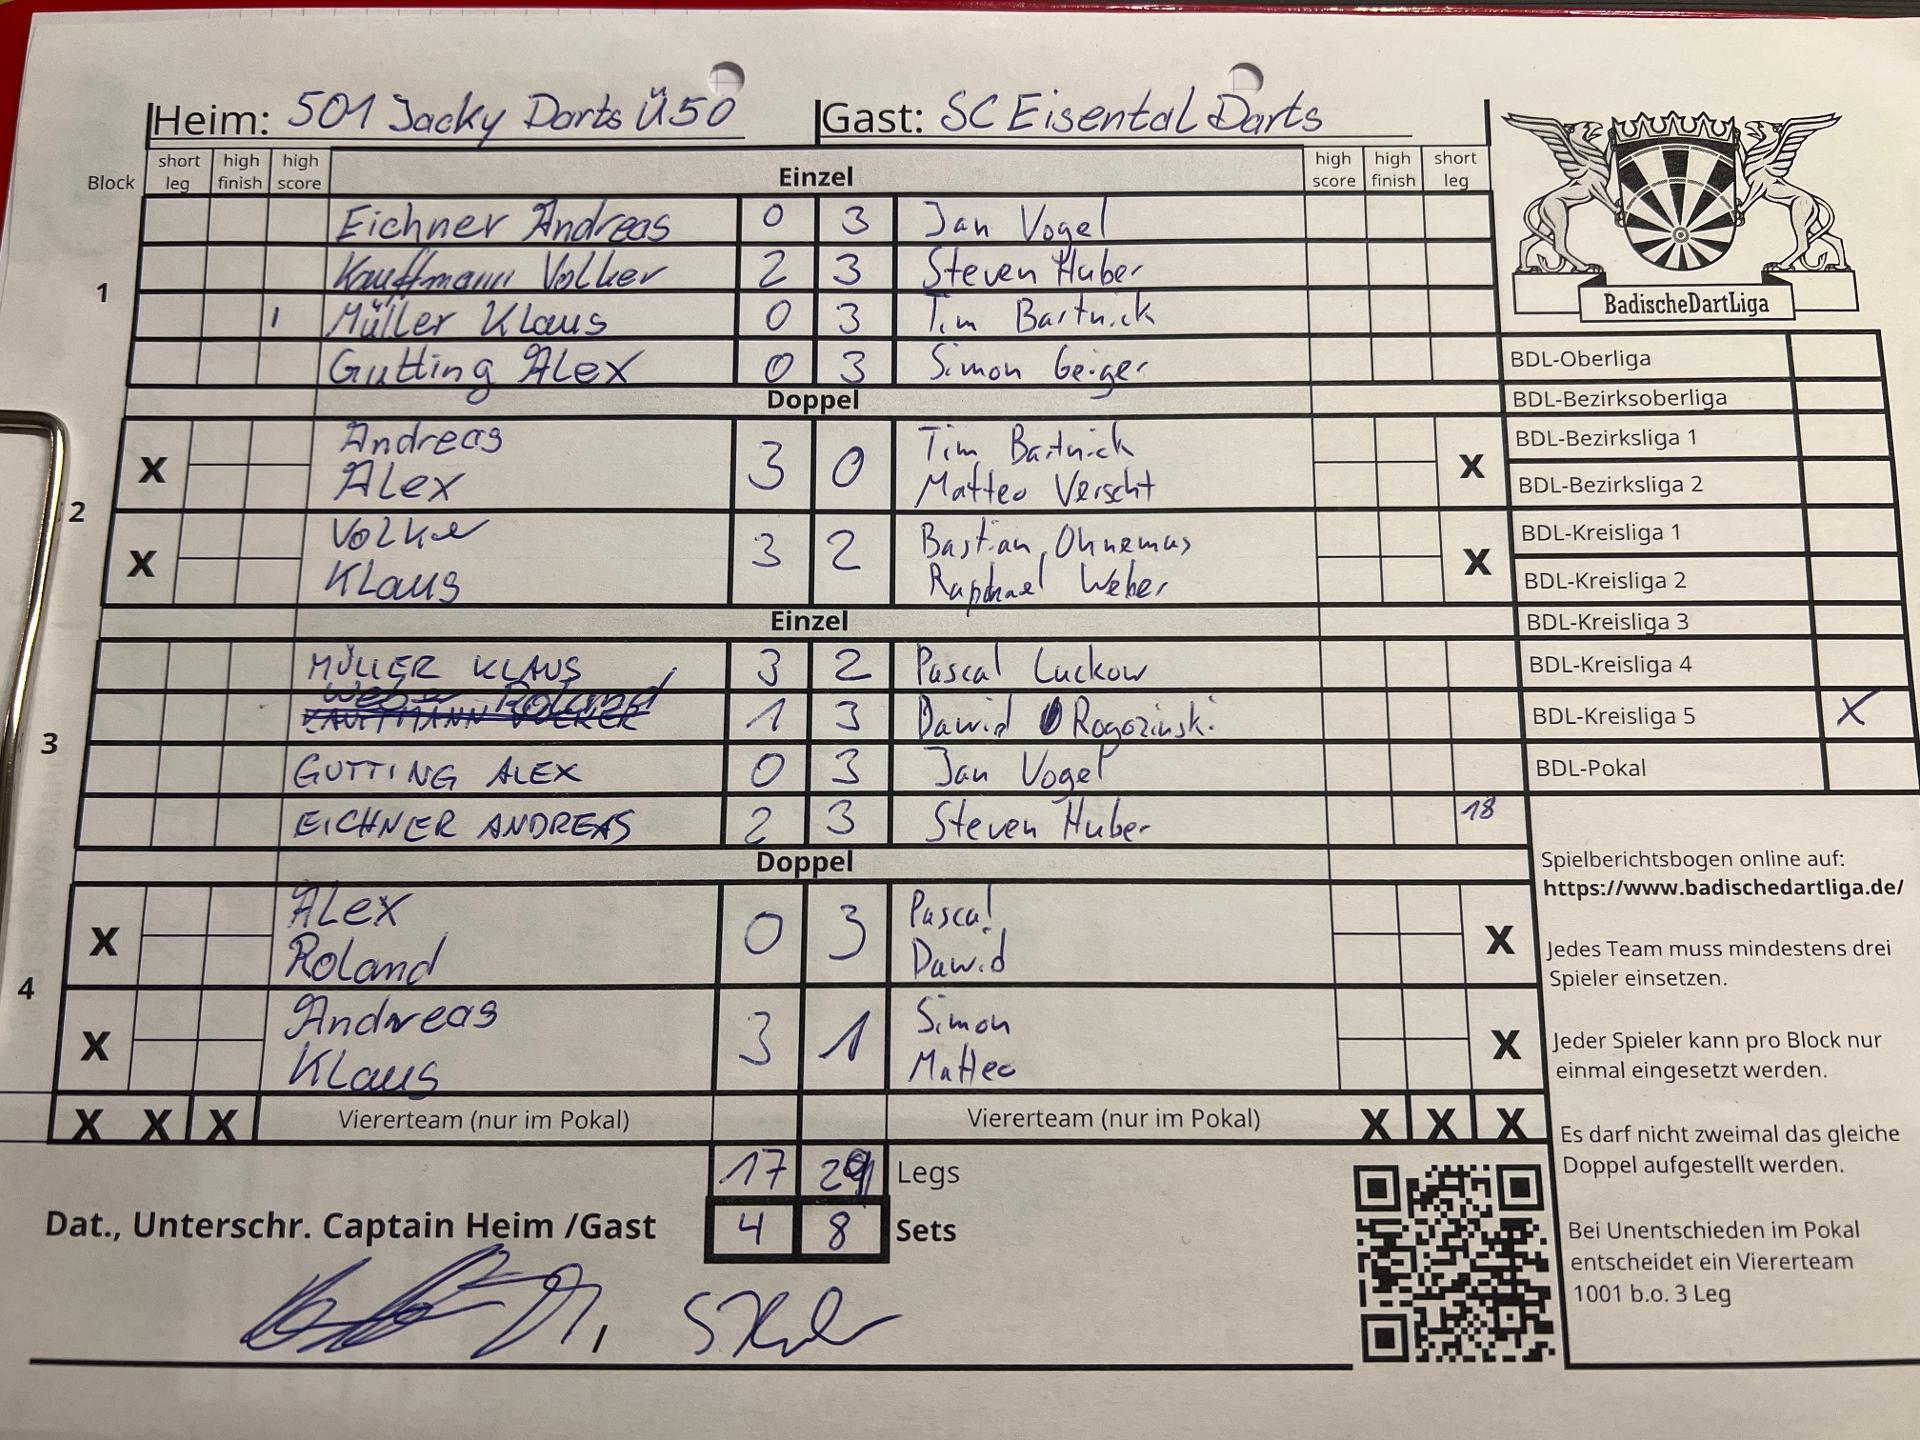 Heim: 501 Jacky Darts Ü50 Gast: SC Eisental Darts
Block short leg high finish high score Einzel high score high finish short leg
1
Eichner Andreas 0 3 Jan Vogel
Kauffmann Volker 2 3 Steven Huber
1 Müller Klaus 0 3 Tim Bartnick
Gutting Alex 0 3 Simon Geiger
Doppel
2
X Andreas 3 0 Tim Bartnick X
Alex Matteo Verscht
X Volker 3 2 Bastian Ohnemus X
Klaus Raphael Weber
Einzel
3
MÜLLER KLAUS 3 2 Pascal Luckow
Weber Roland
KAUFFMANN VOLKER 1 3 Dawid Rogozinski
GUTTING ALEX 0 3 Jan Vogel
EICHNER ANDREAS 2 3 Steven Huber 18
Doppel
4
X Alex 0 3 Pascal X
Roland Dawid
X Andreas 3 1 Simon X
Klaus Matteo
X X X Viererteam (nur im Pokal) Viererteam (nur im Pokal) X X X
17 29 Legs
4 8 Sets
Dat., Unterschr. Captain Heim /Gast
BadischeDartLiga
BDL-Oberliga
BDL-Bezirksoberliga
BDL-Bezirksliga 1
BDL-Bezirksliga 2
BDL-Kreisliga 1
BDL-Kreisliga 2
BDL-Kreisliga 3
BDL-Kreisliga 4
BDL-Kreisliga 5 X
BDL-Pokal
Spielberichtsbogen online auf:
https://www.badischedartliga.de/
Jedes Team muss mindestens drei
Spieler einsetzen.
Jeder Spieler kann pro Block nur
einmal eingesetzt werden.
Es darf nicht zweimal das gleiche
Doppel aufgestellt werden.
Bei Unentschieden im Pokal
entscheidet ein Viererteam
1001 b.o. 3 Leg